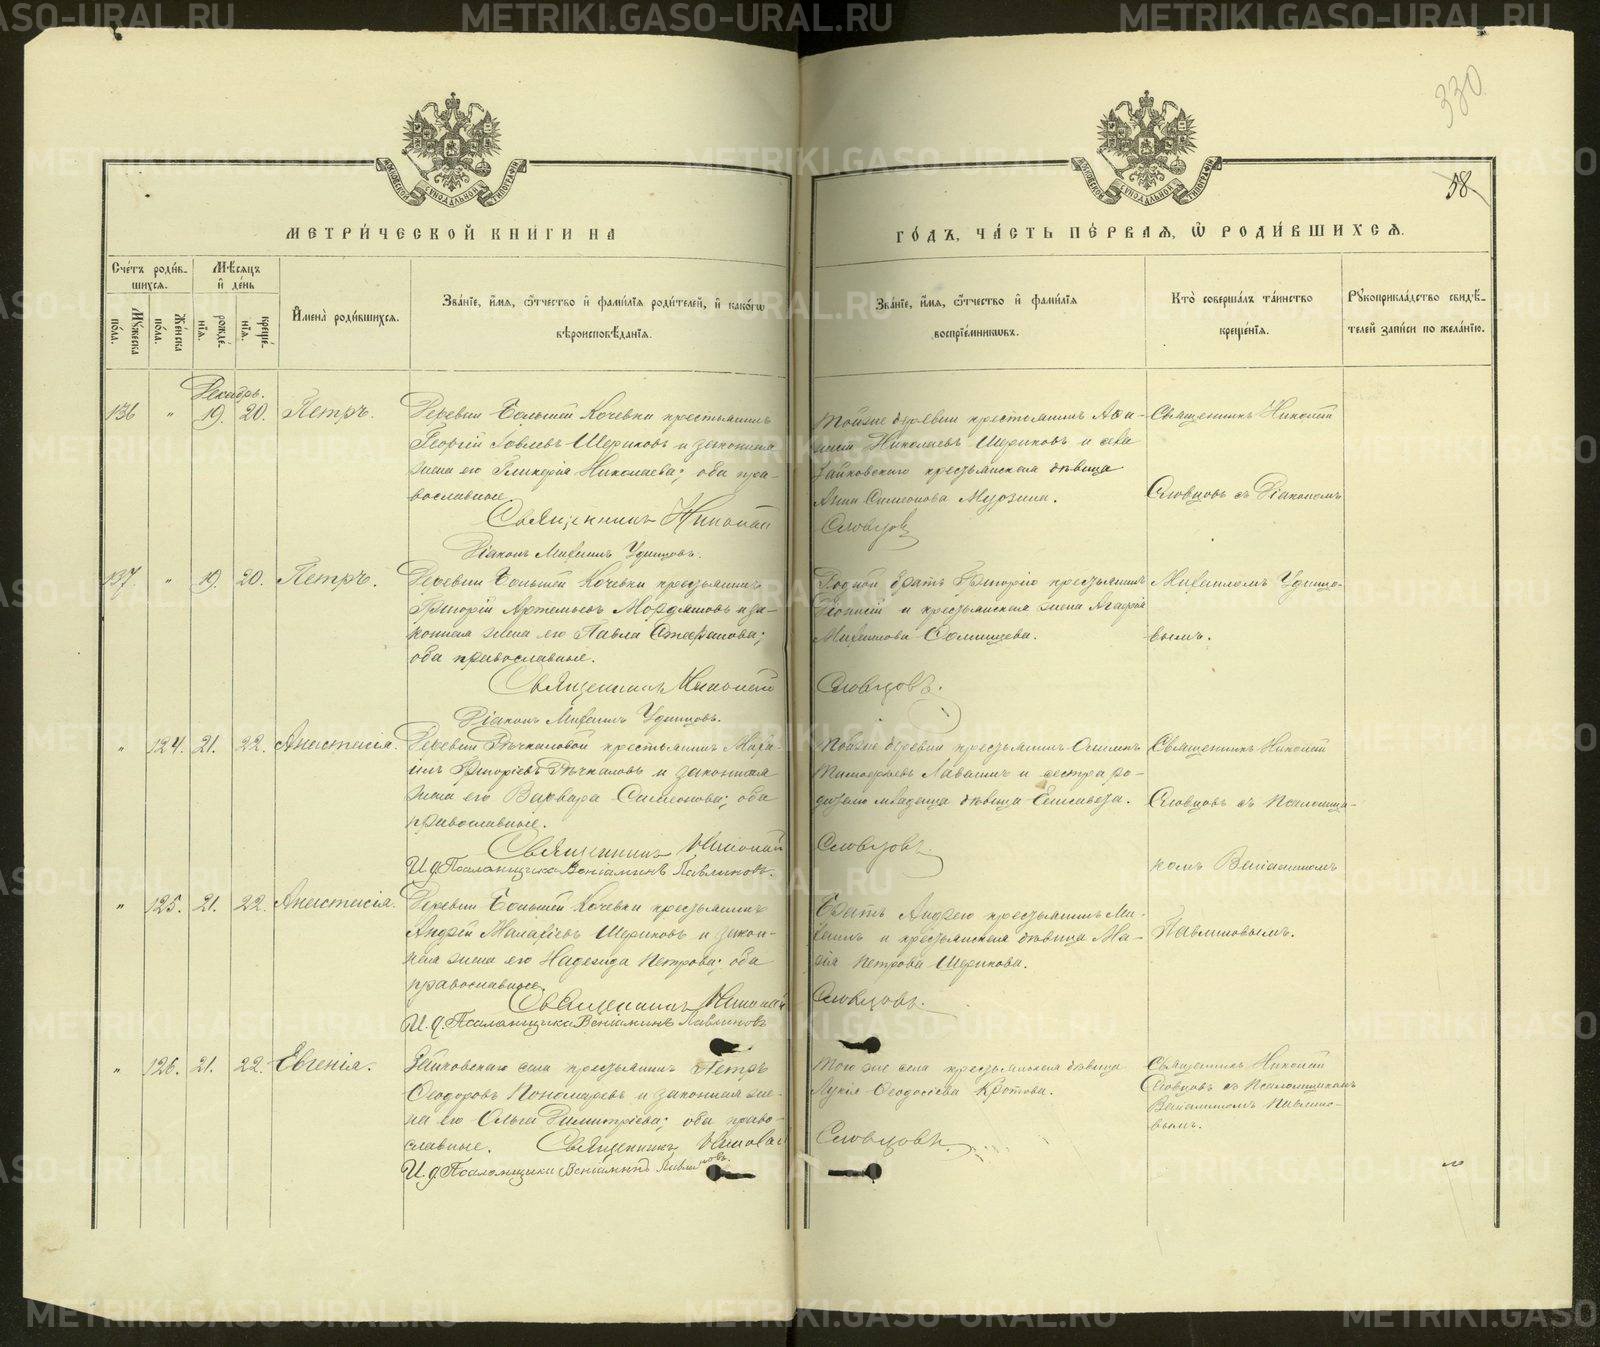 METRIKI.GASO-URAL.RU
330.
58
МЕТРИ́ЧЕСКОЙ КНИ́ГИ НА
ГО́ДЪ, ЧА́СТЬ ПЕ́РВАЯ, Ѽ РОДИ́ВШИХСЯ.
Сче́тъ роди́в-
шихся.
Мѣ́сяцъ
и҆ де́нь
Му́жеска
по́ла.
Же́нска
по́ла.
рожде́-
нїя.
креще́-
нїя.
И҆мена̀ роди́вшихся.
Зва́нїе, и҆́мя, ѻ҆́тчество и҆ фами́лїя роди́телей, и҆ како́гѡ
вѣроисповѣ́данїя.
Зва́нїе, и҆́мя, ѻ҆́тчество и҆ фами́лїя
воспрїе́мникѡвъ.
Кто̀ соверша́лъ та́инство
креще́нїя.
Рꙋкоприкла́дство свидѣ́-
телей за́писи по жела́нїю.
Декабрь.
136 " 19. 20. Петръ.
Деревни Большей Кочевки крестьянинъ
Георгій Шериковъ и законная
жена его Гликерія Николаева; оба пра-
вославные.
Священникъ Николай
Діаконъ Михаилъ Удинцовъ.
Тойже деревни крестьянинъ
Николаевъ Шериковъ и села
Зайковскаго крестьянская дѣвица
Анна Симеонова Мурзина.
Словцов
Священникъ Николай
Словцовъ съ Діакономъ
137. " 19. 20. Петръ.
Деревни Большей Кочевки крестьянинъ
Григорій Артемьевъ и за-
конная жена его Павла Стефанова;
оба православные.
Священникъ Николай
Діаконъ Михаилъ Удинцовъ.
Родной братъ Григорію крестьянинъ
и крестьянская жена Агафія
Михаилова
Словцовъ.
Михаиломъ Удинцо-
вымъ.
" 124. 21. 22. Анастасія.
Деревни Рѣчкаловой крестьянинъ Миха-
илъ Григорьевъ Рѣчкаловъ и законная
жена его Варвара Симеонова; оба
православные.
Священникъ Николай
И. д. Псаломщика Веніаминъ Павлиновъ.
Тойже деревни крестьянинъ
и сестра ро-
дителю младенца дѣвица Елисавета.
Словцовъ.
Священникъ Николай
Словцовъ съ Псаломщи-
комъ Веніаминомъ
" 125. 21. 22. Анастасія.
Деревни Большей Кочевки крестьянинъ
Андрей Малахіевъ Шериковъ и закон-
ная жена его Надежда Петрова; оба
православные.
Священникъ Николай
И. д. Псаломщика Веніаминъ Павлиновъ
Братъ Андрею крестьянинъ Ми-
хаилъ и крестьянская дѣвица Ма-
рія Петрова Шерикова.
Словцовъ.
Павлиновымъ.
" 126. 21. 22. Евгенія.
Зайковскаго села крестьянинъ Петръ
Ѳеодоровъ Пономаревъ и законная же-
на его Ольга Димитріева; оба право-
славные. Священникъ Николай
И. д. Псаломщика Веніаминъ Павлиновъ.
Того же села крестьянская дѣвица
Лукія Ѳеодосіева Кротова.
Словцовъ.
Священникъ Николай
Словцовъ съ Псаломщикомъ
Веніаминомъ Павлино-
вымъ.